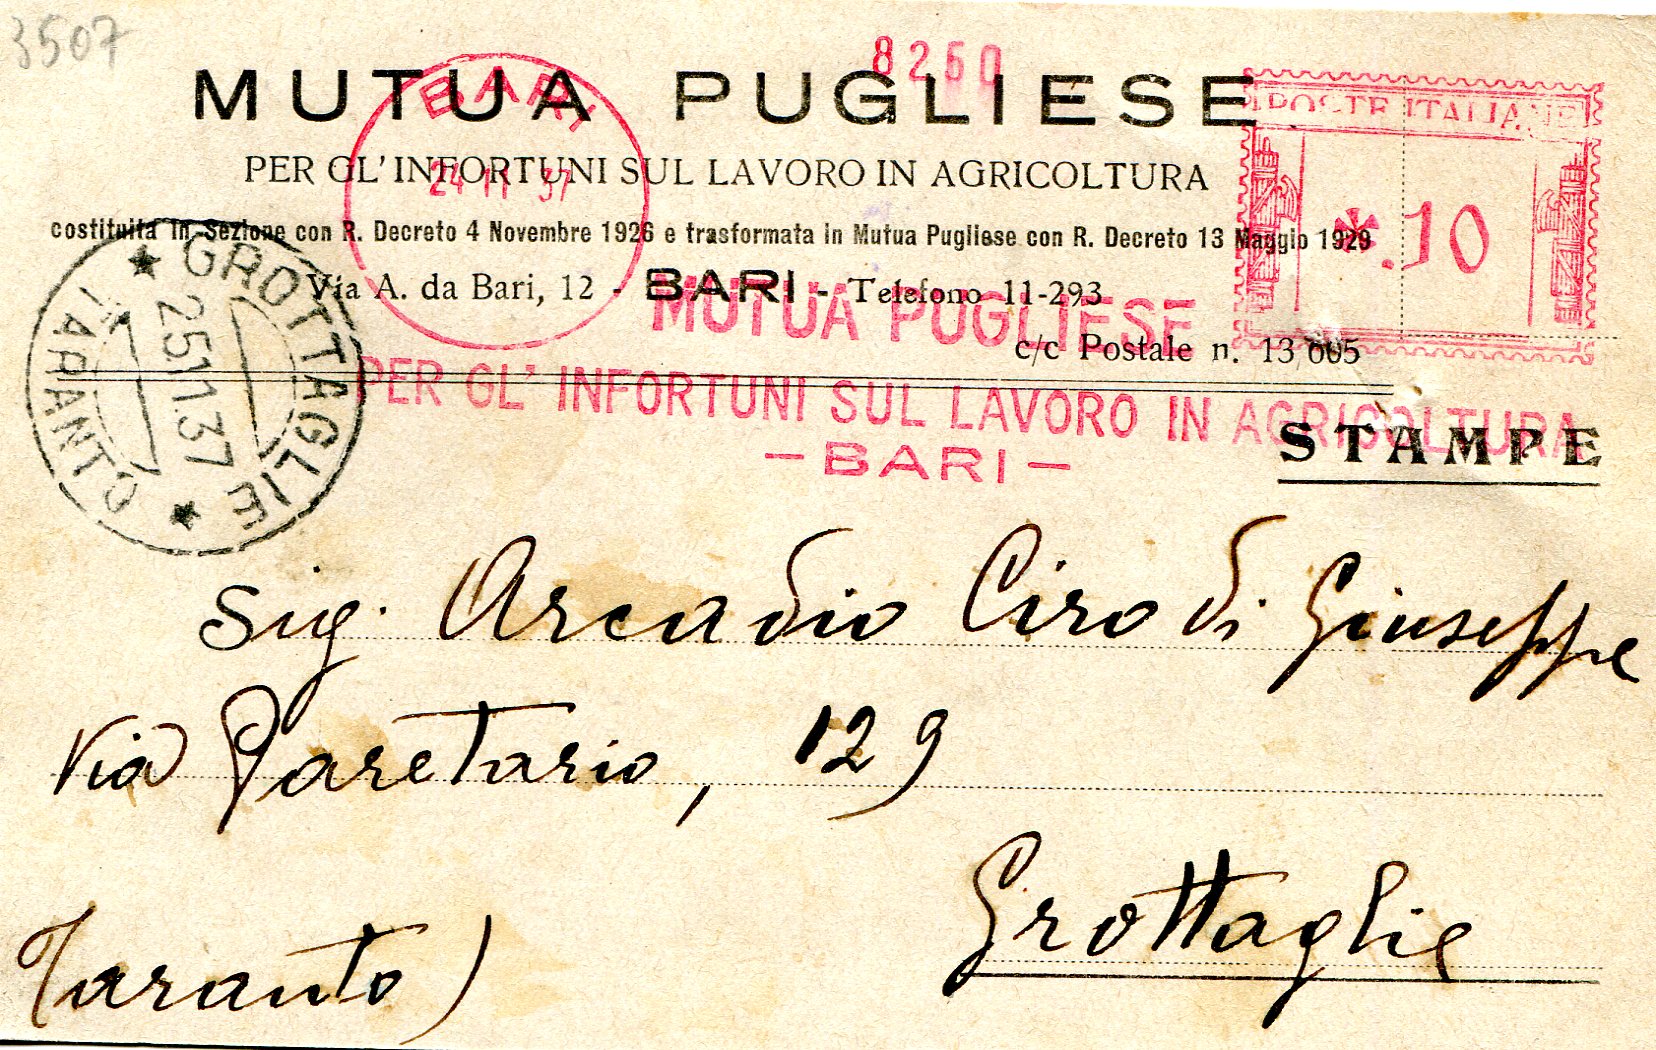 3507
MUTUA PUGLIESE
8260
POSTE ITALIANE
PER GL'INFORTUNI SUL LAVORO IN AGRICOLTURA
BARI
24 11 37
*.10
costituita in Sezione con R. Decreto 4 Novembre 1926 e trasformata in Mutua Pugliese con R. Decreto 13 Maggio 1929
Via A. da Bari, 12 - BARI - Telefono 11-293
c/c Postale n. 13 605
MUTUA PUGLIESE
PER GL' INFORTUNI SUL LAVORO IN AGRICOLTURA
- BARI -
GROTTAGLIE
25.11.37
TARANTO
STAMPE
Sig. Arcadio Ciro di Giuseppe
Via 129
Grottaglie
Taranto)